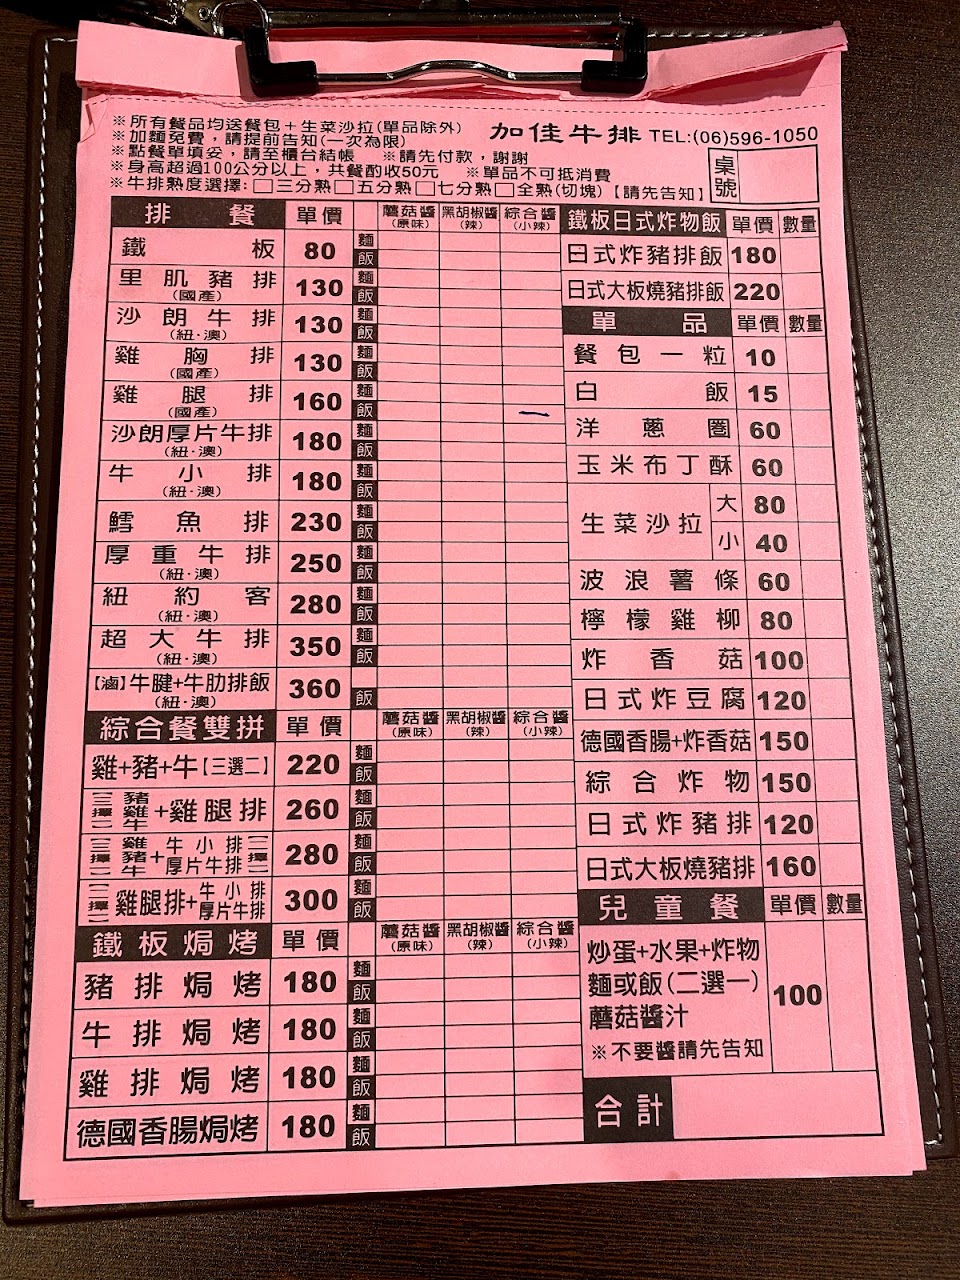 ※所有餐品均送餐包＋生菜沙拉(單品除外)
※加麵免費，請提前告知(一次為限)
※點餐單填妥，請至櫃台結帳　※請先付款，謝謝
※身高超過100公分以上，共餐酌收50元　※單品不可抵消費
※牛排熟度選擇:□三分熟□五分熟□七分熟□全熟(切塊)【請先告知】
加佳牛排 TEL:(06)596-1050
桌號
排餐 單價 蘑菇醬(原味) 黑胡椒醬(辣) 綜合醬(小辣)
鐵板 80 麵 飯
里肌豬排(國產) 130 麵 飯
沙朗牛排(紐·澳) 130 麵 飯
雞胸排(國產) 130 麵 飯
雞腿排(國產) 160 麵 飯
沙朗厚片牛排(紐·澳) 180 麵 飯
牛小排(紐·澳) 180 麵 飯
鱈魚排 230 麵 飯
厚重牛排(紐·澳) 250 麵 飯
紐約客(紐·澳) 280 麵 飯
超大牛排(紐·澳) 350 麵 飯
【滷】牛腱+牛肋排飯(紐·澳) 360 飯
綜合餐雙拼 單價 蘑菇醬(原味) 黑胡椒醬(辣) 綜合醬(小辣)
雞+豬+牛【三選二】 220 麵 飯
【三擇一】豬雞牛+雞腿排 260 麵 飯
【三擇一】雞豬牛+牛小排 厚片牛排【二擇一】 280 麵 飯
【二擇一】雞腿排+牛小排 厚片牛排 300 麵 飯
鐵板焗烤 單價 蘑菇醬(原味) 黑胡椒醬(辣) 綜合醬(小辣)
豬排焗烤 180 麵 飯
牛排焗烤 180 麵 飯
雞排焗烤 180 麵 飯
德國香腸焗烤 180 麵 飯
鐵板日式炸物飯 單價 數量
日式炸豬排飯 180
日式大板燒豬排飯 220
單品 單價 數量
餐包一粒 10
白飯 15
洋蔥圈 60
玉米布丁酥 60
生菜沙拉 大 80
小 40
波浪薯條 60
檸檬雞柳 80
炸香菇 100
日式炸豆腐 120
德國香腸+炸香菇 150
綜合炸物 150
日式炸豬排 120
日式大板燒豬排 160
兒童餐 單價 數量
炒蛋+水果+炸物
麵或飯(二選一) 100
蘑菇醬汁
※不要醬請先告知
合計